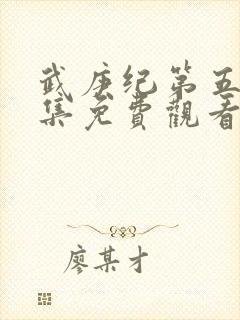 武庚纪第五
集免費觀看
廖某才